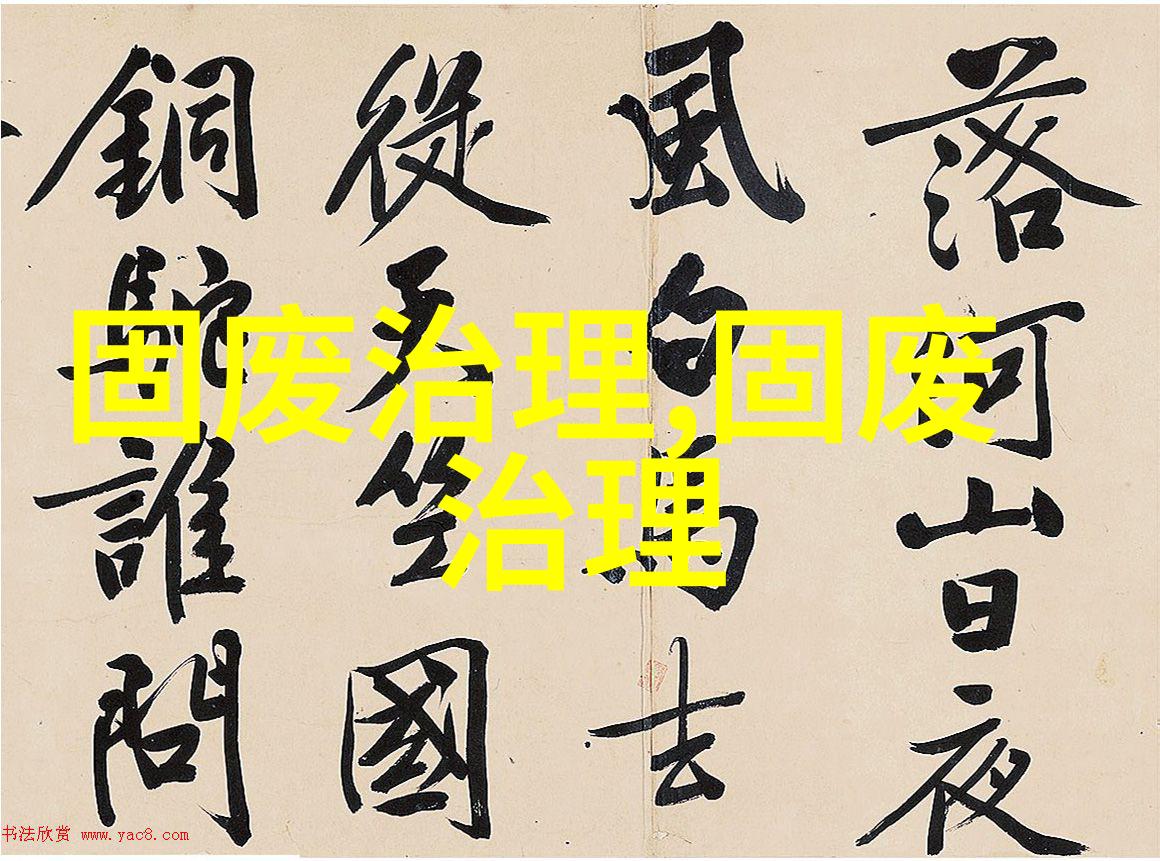 固废治理,固废
治理
落河山日夜
風白馬去
從天竺國
銅駝誰問
书法欣赏 www.yac8.com